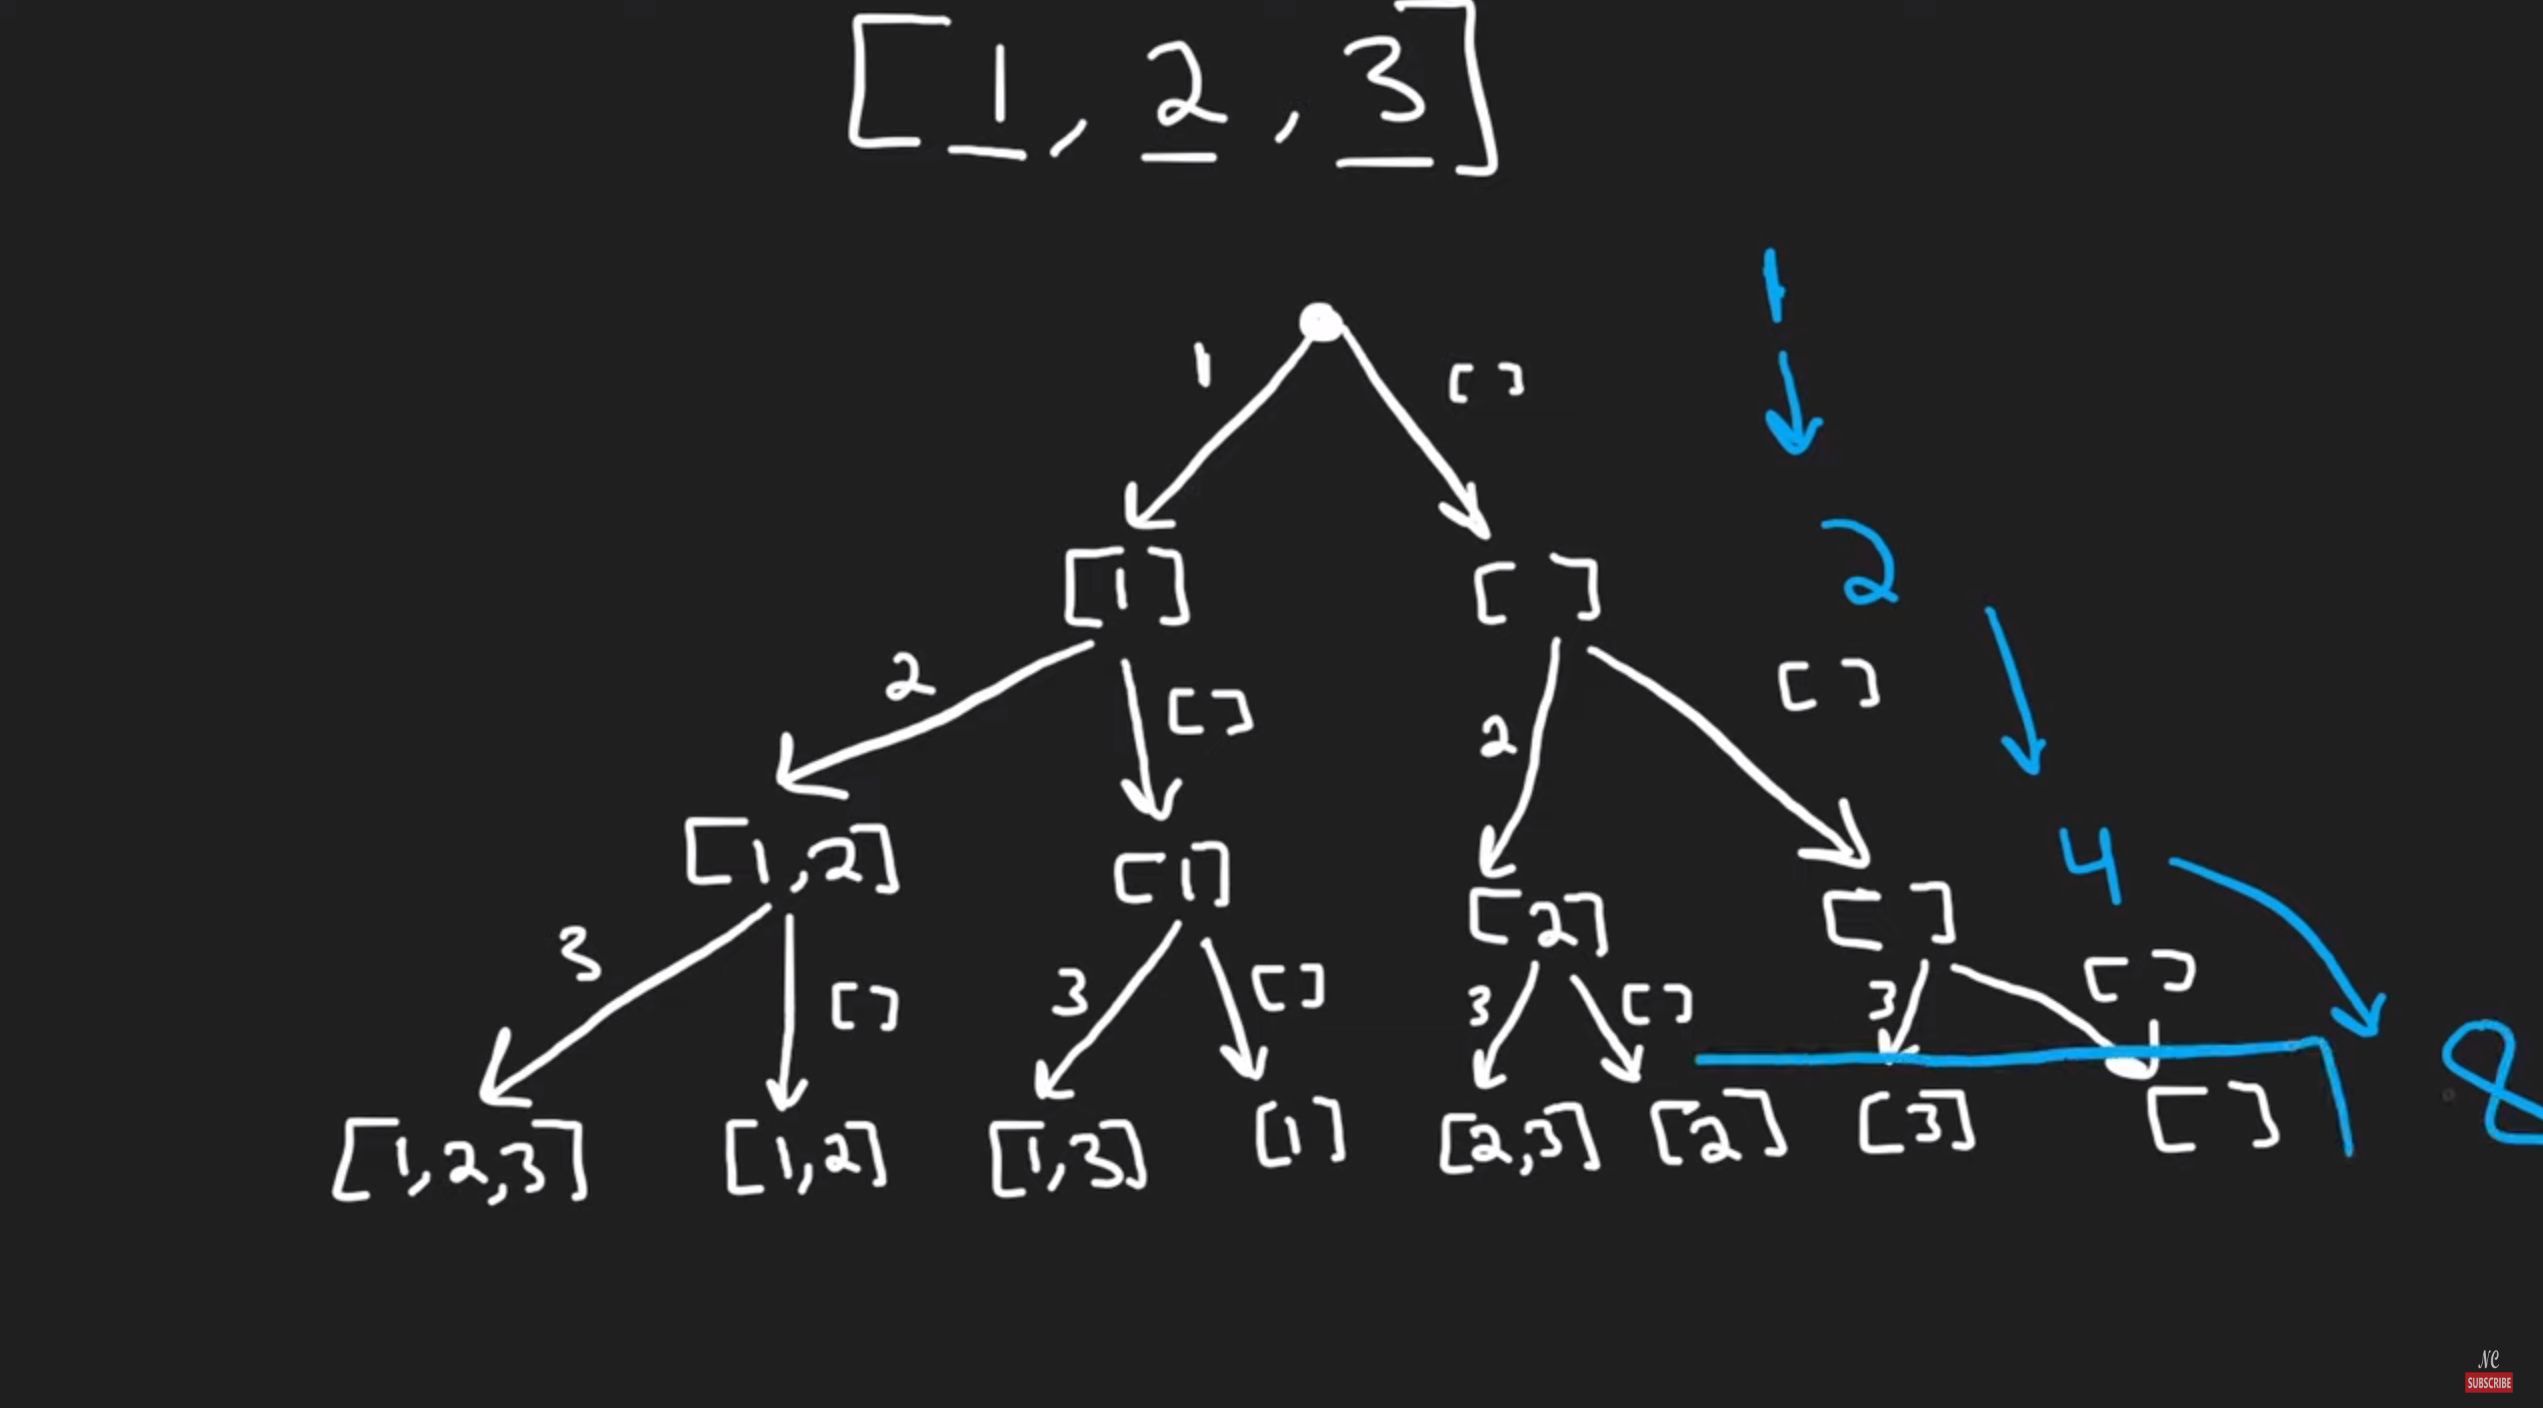 [1, 2, 3]
1
1 []
2
[1] []
2 [] 2 []
4
[1,2] [1] [2] []
3 [] 3 [] 3 [] 3 []
8
[1,2,3] [1,2] [1,3] [1] [2,3] [2] [3] []
NC
SUBSCRIBE